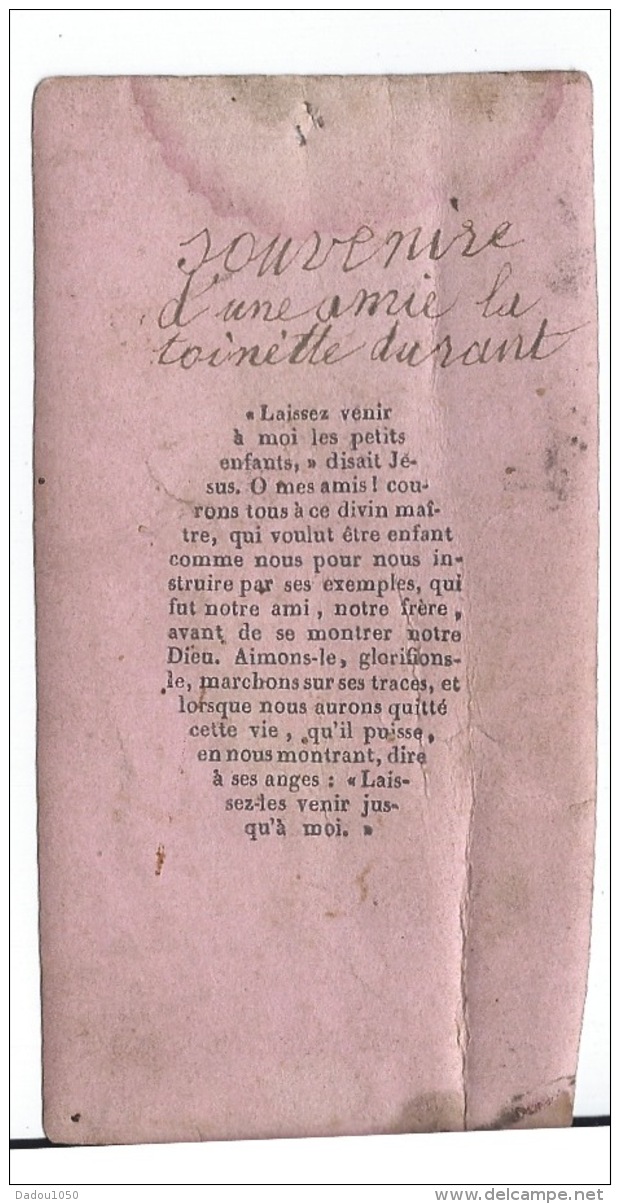 souvenire
d'une amie la
toinette durant
« Laissez venir
à moi les petits
enfants, » disait Jé-
sus. O mes amis ! cou-
rons tous à ce divin maî-
tre, qui voulut être enfant
comme nous pour nous in-
struire par ses exemples, qui
fut notre ami, notre frère,
avant de se montrer notre
Dieu. Aimons-le, glorifions-
le, marchons sur ses traces, et
lorsque nous aurons quitté
cette vie, qu'il puisse,
en nous montrant, dire
à ses anges : « Lais-
sez-les venir jus-
qu'à moi. »
Dadou1050
delcampe.net